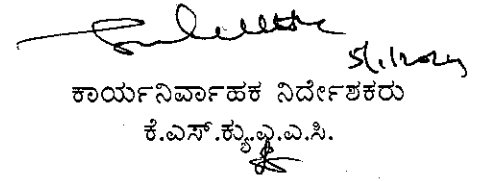 ಕಾರ್ಯನಿರ್ವಾಹಕ ನಿರ್ದೇಶಕರು
ಕೆ.ಎಸ್.ಕ್ಯು.ಎ.ಎ.ಸಿ.